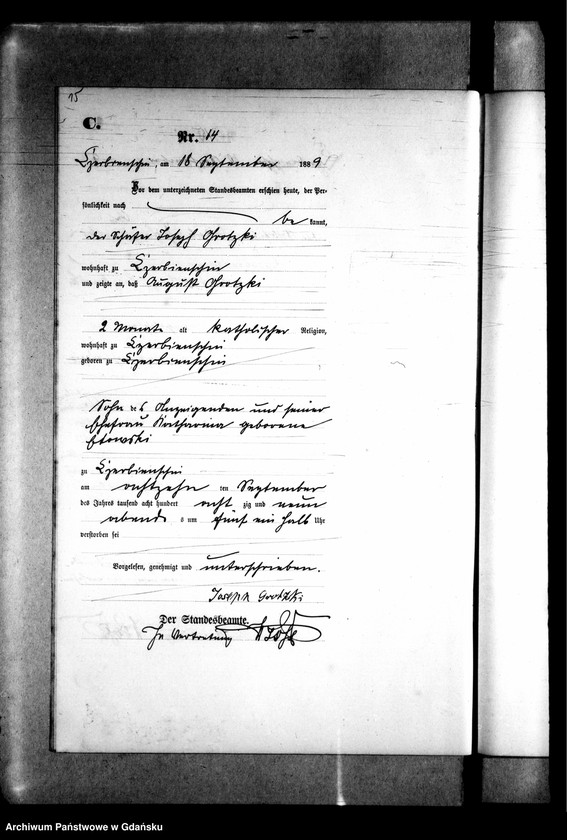 15
C.
Nr. 14
Czerbienschin, am 18 September 1889
Vor dem unterzeichneten Standesbeamten erschien heute, der Per-
sönlichkeit nach
be kannt,
der Schäfer Joseph Grotzki
wohnhaft zu Czerbienschin
und zeigte an, daß August Grotzki
2 Monate alt katholischer Religion,
wohnhaft zu Czerbienschin
geboren zu Czerbienschin
Sohn des Anzeigenden und seiner
Ehefrau Katharina geborene
zu Czerbienschin
am achtzehn ten September
des Jahres tausend acht hundert acht zig und neun
abends um fünf ein halb Uhr
verstorben sei
Vorgelesen, genehmigt und unterschrieben.
Joseph Grotzki
Der Standesbeamte.
In Vertretung
Archiwum Państwowe w Gdańsku